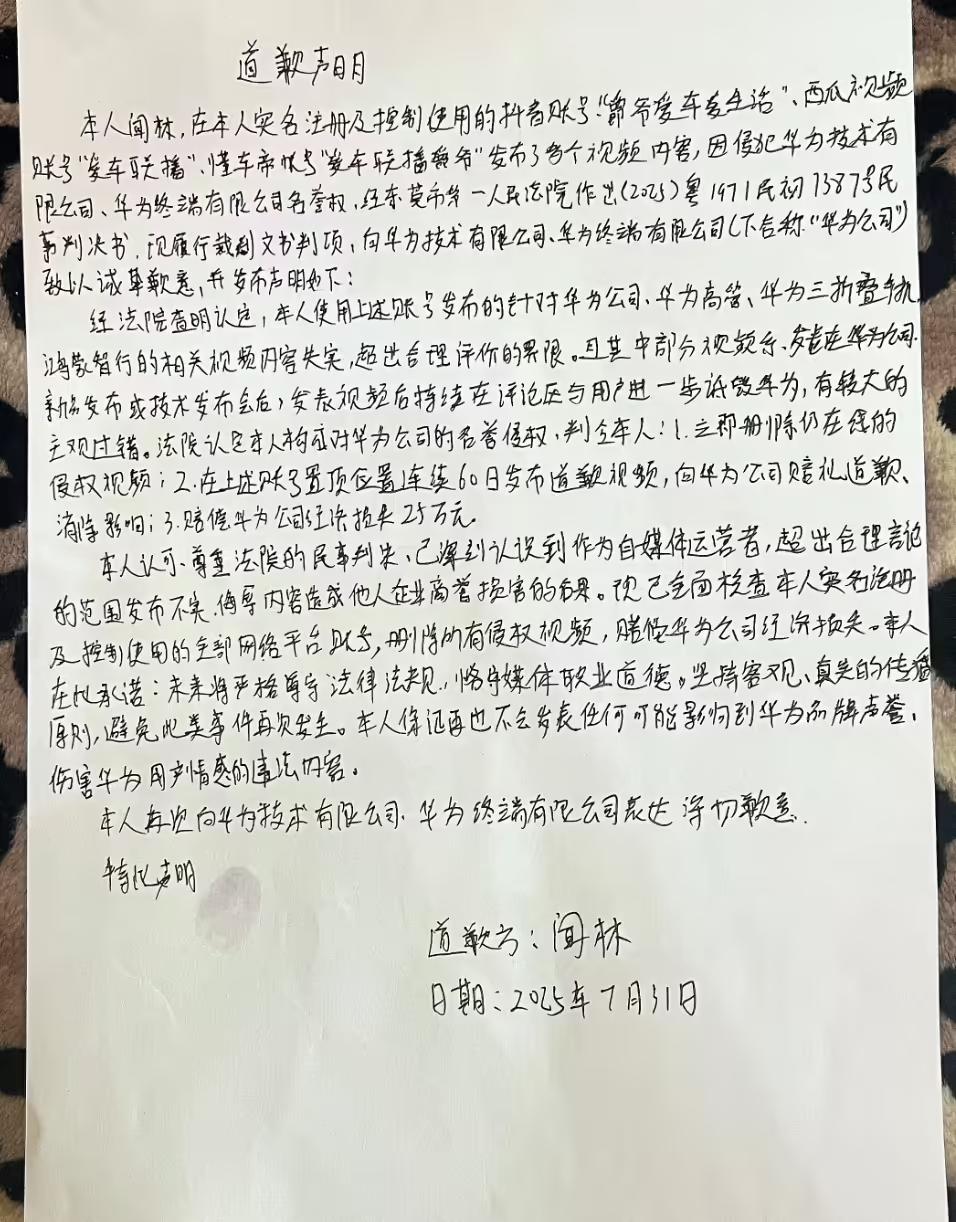 道歉声明
本人闻林,在本人实名注册及控制使用的抖音账号“爵爷爱车爱生活”、西瓜视频
账号“爱车联播”、懂车帝帐号“爱车联播爵爷”发布了多个视频内容,因侵犯华为技术有
限公司、华为终端有限公司名誉权,经东莞市第一人民法院作出(2025)粤1971民初13873号民
事判决书,现履行裁判文书判项,向华为技术有限公司、华为终端有限公司(下合称“华为公司”)
致以诚挚歉意,并发布声明如下:
经法院查明认定,本人使用上述账号发布的针对华为公司、华为高管、华为三折叠手机、
鸿蒙智行的相关视频内容失实,超出合理评价的界限。且其中部分视频系发表在华为公司
新品发布或技术发布会后,发表视频后持续在评论区与用户进一步诋毁华为,有较大的
主观过错。法院认定本人构成对华为公司的名誉侵权,判令本人:1.立即删除仍在线的
侵权视频;2.在上述账号置顶位置连续60日发布道歉视频,向华为公司赔礼道歉、
消除影响;3.赔偿华为公司经济损失25万元。
本人认可、尊重法院的民事判决,已深刻认识到作为自媒体运营者,超出合理言论
的范围发布不实、侮辱内容造成他人企业商誉损害的后果。现已全面核查本人实名注册
及控制使用的全部网络平台账号,删除所有侵权视频,赔偿华为公司经济损失。本人
在此承诺:未来将严格遵守法律法规,恪守媒体职业道德。坚持客观、真实的传播
原则,避免此类事件再次发生。本人保证再也不会发表任何可能影响到华为品牌声誉、
伤害华为用户情感的违法内容。
本人再次向华为技术有限公司、华为终端有限公司表达深切歉意.
特此声明
道歉方:闻林
日期:2025年7月31日